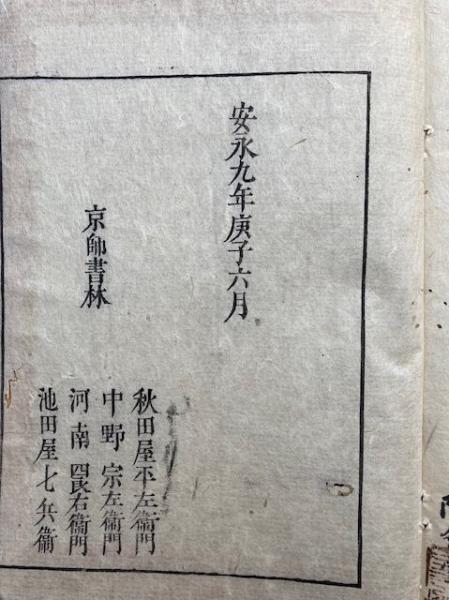 安永九年庚子六月
京師書林
秋田屋平左衛門
中野宗左衛門
河南四良右衛門
池田屋七兵衛